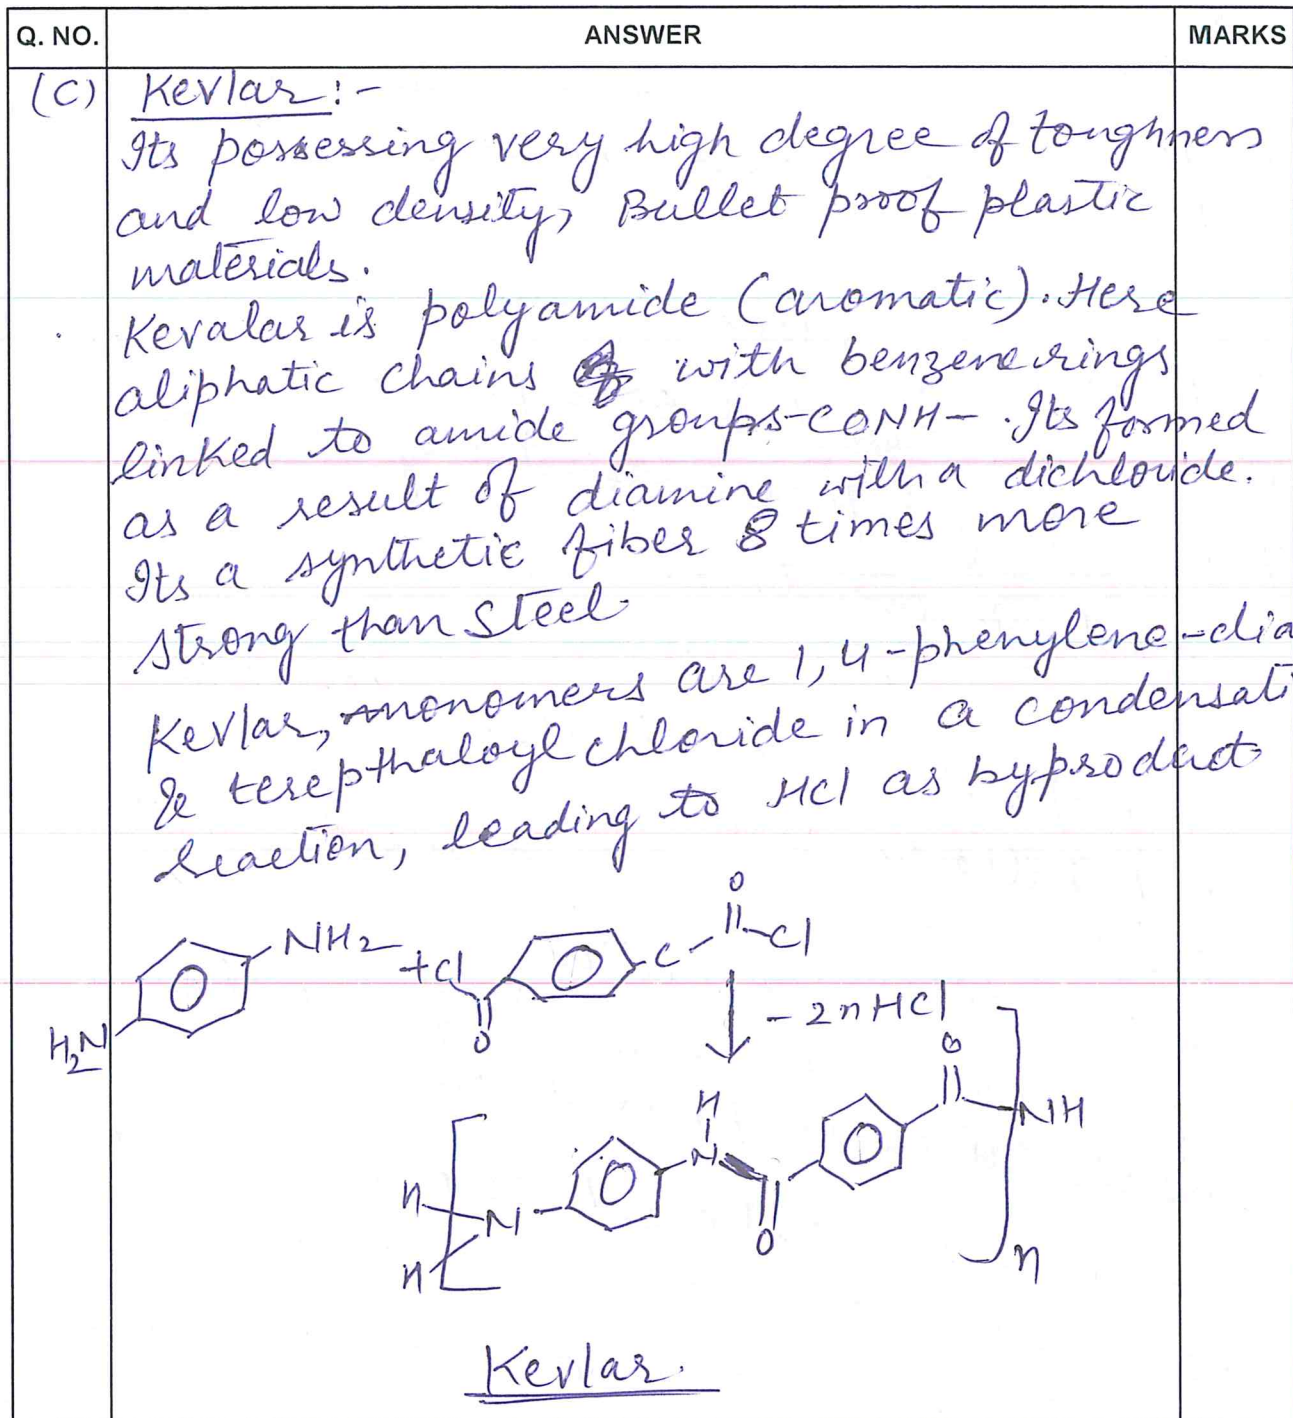 Q. NO. ANSWER MARKS
(C) Kevlar :-
Its possessing very high degree of toughness
and low density, Bullet proof plastic
materials.
Kevalar is polyamide (aromatic). Here
aliphatic chains with benzene rings
linked to amide groups -CONH- . Its formed
as a result of diamine with a dichloride.
Its a synthetic fiber 8 times more
strong than steel.
Kevlar, monomers are 1,4-phenylene-dia
& terepthaloyl chloride in a condensati
reaction, leading to HCl as byproduct
O
NH2 +Cl C Cl
H2N O
- 2nHCl
O
H NH
N
H N
H O n
Kevlar.